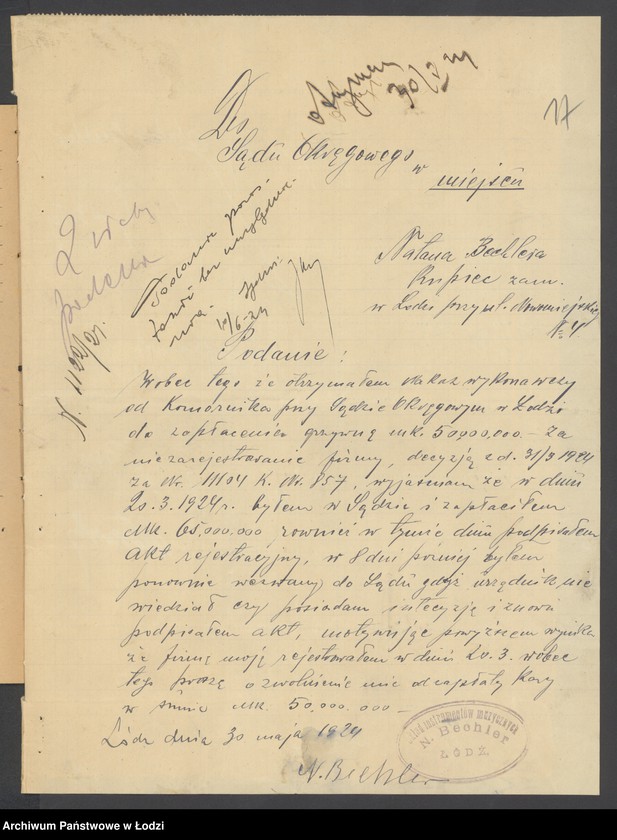 17
Do
Sądu Okręgowego
w
miejscu
Natana Bechlera
Kupiec zam.
w Łodzi przy ul. Nowomiejskiej
№ 4
Podanie
10/6-24
Podanie:
Wobec tego że otrzymałem nakaz wykonawczy
od Komornika przy Sądzie Okręgowym w Łodzi
do zapłacenia grzywnę mk. 50000.000.- za
niezarejestrowanie firmy, decyzją z d. 31/3 1924
za Nr. 11104 K. Nr. 857, wyjaśniam że w dniu
20.3.1924r. byłem w Sądzie i zapłaciłem
Mk. 65,000.000, również w tymże dniu podpisałem
akt rejestracyjny, w 8 dni pózniej byłem
ponownie wezwany do Sądu gdyż urzędnik nie
wiedział czy posiadam intecyzją i znowu
podpisałem akt, motywując powyższem wynika
że firmę moją rejestrowałem w dniu 20.3. wobec
tego proszę o zwolnienie mie od zapłaty kary
w sumie Mk. 50.000.000 -
Łódz dnia 30 maja 1924
N. Bechler
instrumentów muzycznych
N. Bechler
ŁÓDŹ
Archiwum Państwowe w Łodzi